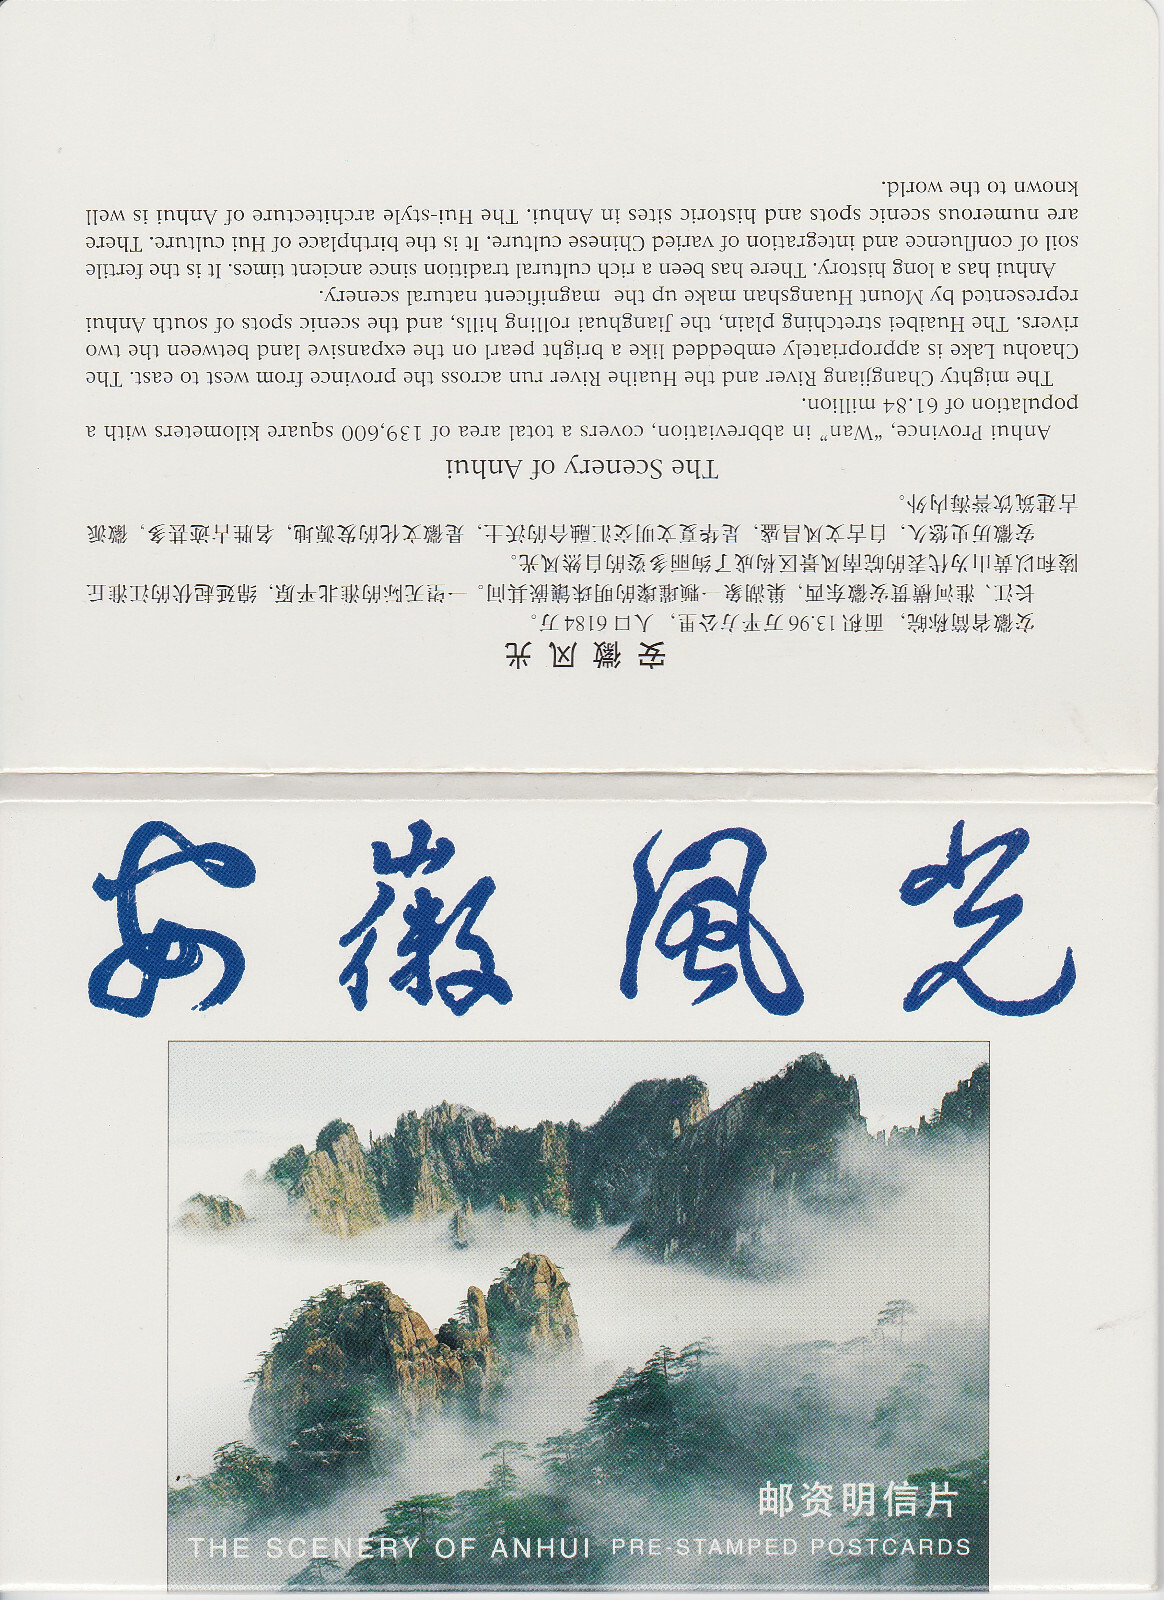 安徽风光
安徽省简称皖，面积13.96万平方公里，人口6184万。
长江、淮河横贯安徽东西，巢湖象一颗璀璨的明珠镶嵌其间。一望无际的淮北平原，绵延起伏的江淮丘
陵和以黄山为代表的皖南风景区构成了绚丽多姿的自然风光。
安徽历史悠久，自古文风昌盛，是华夏文明交汇融合的沃土，是徽文化的发源地，名胜古迹甚多，徽派
古建筑饮誉海内外。
The Scenery of Anhui
Anhui Province, "Wan" in abbreviation, covers a total area of 139,600 square kilometers with a
population of 61.84 million.
The mighty Changjiang River and the Huaihe River run across the province from west to east. The
Chaohu Lake is appropriately embedded like a bright pearl on the expansive land between the two
rivers. The Huaibei stretching plain, the Jianghuai rolling hills, and the scenic spots of south Anhui
represented by Mount Huangshan make up the magnificent natural scenery.
Anhui has a long history. There has been a rich cultural tradition since ancient times. It is the fertile
soil of confluence and integration of varied Chinese culture. It is the birthplace of Hui culture. There
are numerous scenic spots and historic sites in Anhui. The Hui-style architecture of Anhui is well
known to the world.
安徽風光
邮资明信片
THE SCENERY OF ANHUI PRE-STAMPED POSTCARDS